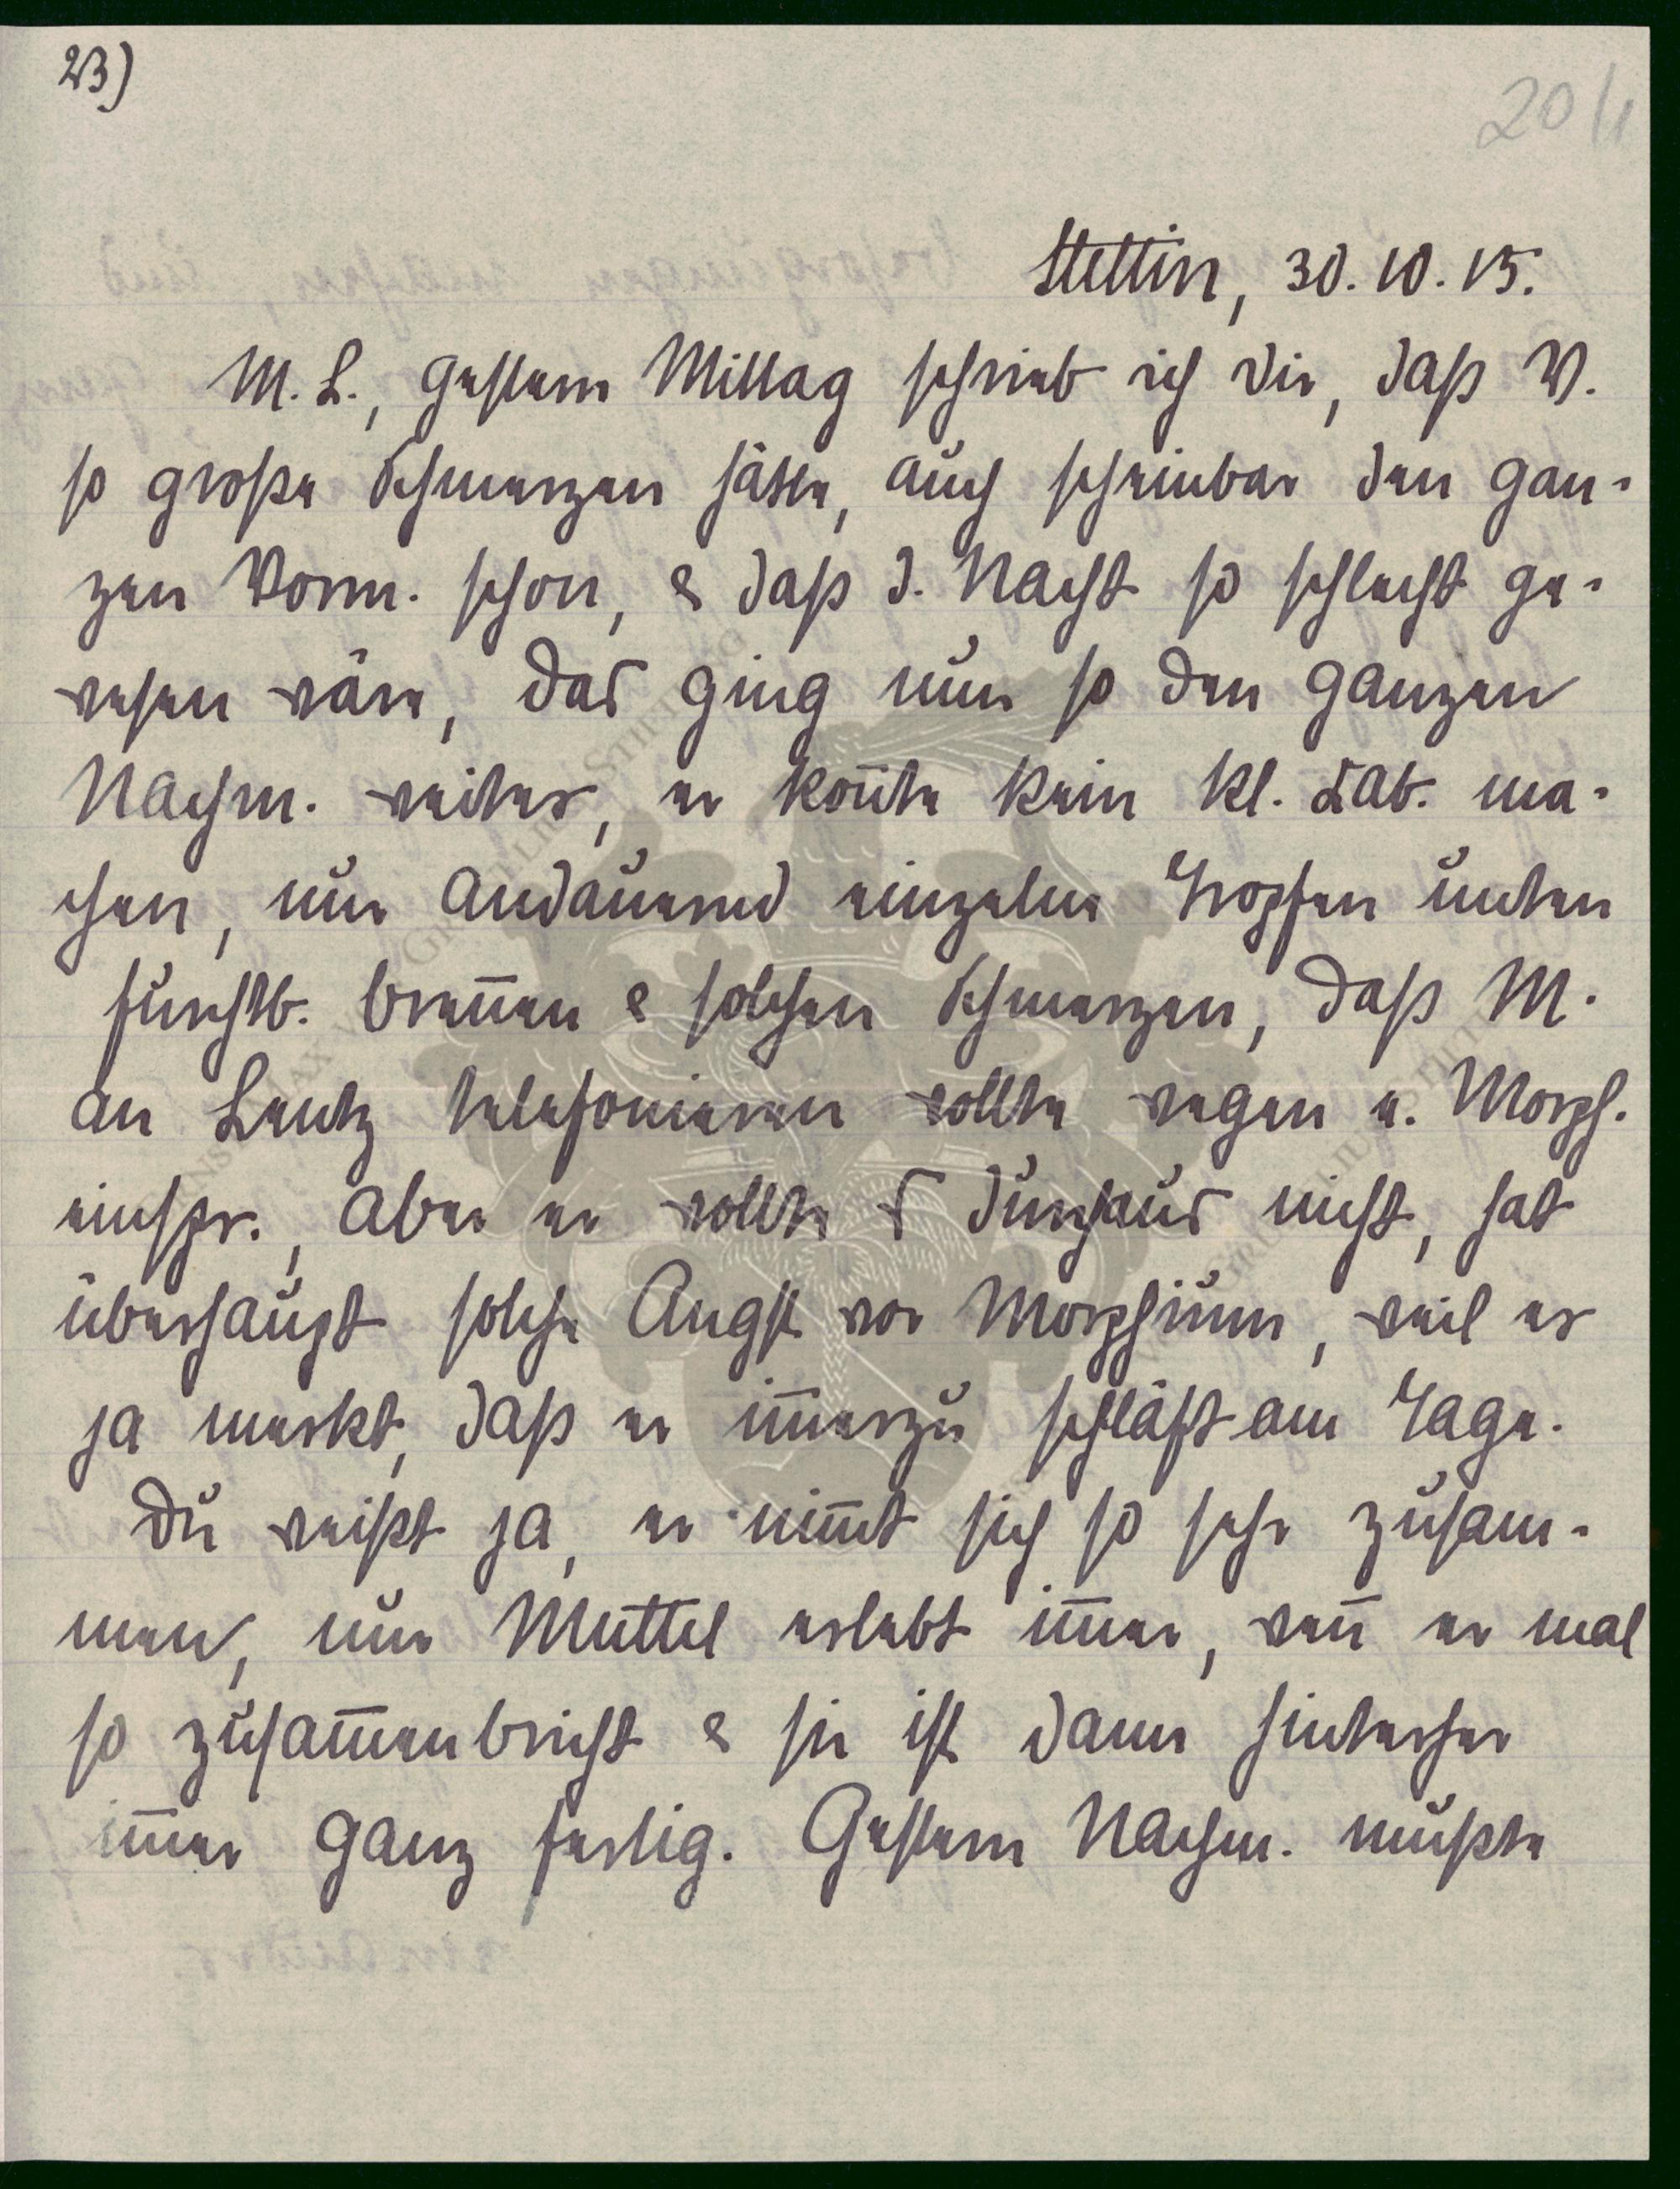 23)
20/1
Stettin, 30.10.15.
M. L., gestern Mittag schrieb ich Dir, daß V.
so große Schmerzen hätte, auch scheinbar den gan-
zen Vorm. schon, & daß d. Nacht so schlecht ge-
wesen wäre, das ging nun so den ganzen
Nachm. weiter, er konn̄te kein kl. Lab. ma-
chen, nur andauernd einzelne Tropfen unter
furchtb. bren̄en & solchen Schmerzen, daß M.
an Lentz telefonieren wollte wegen e. Morph.
einspr., aber er wollte s durchaus nicht, hat
überhaupt solche Angst vor Morphium, weil er
ja merkt, daß er im̄erzu schläft am Tage.
Du weißt ja, er nim̄t sich so sehr zusam-
men, nur Muttel erlebt im̄er, wen̄ er mal
so zusam̄enbricht & sie ist dann hinterher
im̄er ganz fertig. Gestern Nachm. mußte